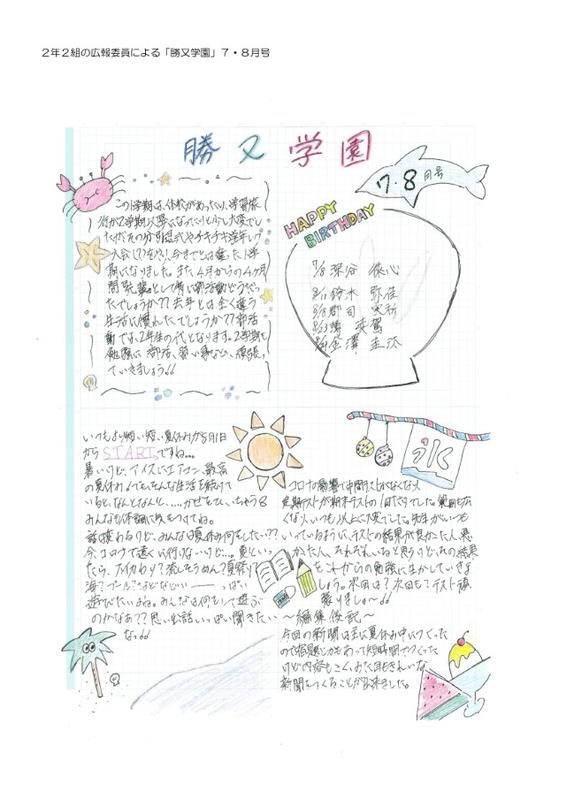 ２年２組の広報委員による「勝又学園」７・８月号
勝又学園
7・8月号
HAPPY
BIRTHDAY
この1学期は、休校があったり、学習旅
行が2学期に
たけどその分
入会
期になりました。また、4月からの4ヶ月
間
たでしょうか??去年とは全く違う
生活に慣れたでしょうか??部活
動では、2年生の代となります。2学期も
勉強に部活、習い事など、頑張っ
ていきましょう!!
7/ 深谷
8/ 鈴木 弥佳
8/ 郡司
8/
8/ 金澤 圭汰
いつもより短い短い夏休みが8月1日
からSTARTですね…
暑いけど、アイスにエアコン、最高
の夏休み
いると、なんとなんと、……かぜをひいちゃう
みんなも体調に気をつけてね。
話は変わるけど、みんなは夏休み何をしたい??
今、コロナで遠くに行けないけど…。夏といっ
たら、スイカわり?流しそうめん?夏祭り?
海?プール?などなどいい――っぱい
遊びたいよね。みんなは何をして遊ぶ
のかなぁ??思い出話いっぱい聞きたい
なぁ!!
氷
コロナの影響で中間テストがなくなり、
定期テストが期末テストの1回だけでした。範囲も広
くなり、いつも以上に大変でした。先生がいつも
いっているように、テストの結果が良かった人、悪
かった人、それぞれいると思うけど、その結果
をこれからの勉強に生かしていきま
しょう。次回は?次回も?テスト頑
張りましょ〜!!
〜編集後記〜
今回の新聞は主に夏休み中につくった
ので宿題とかもあって短時間でつくった
けど内容もこく、みた目もきれいな
新聞をつくることが出来ました。